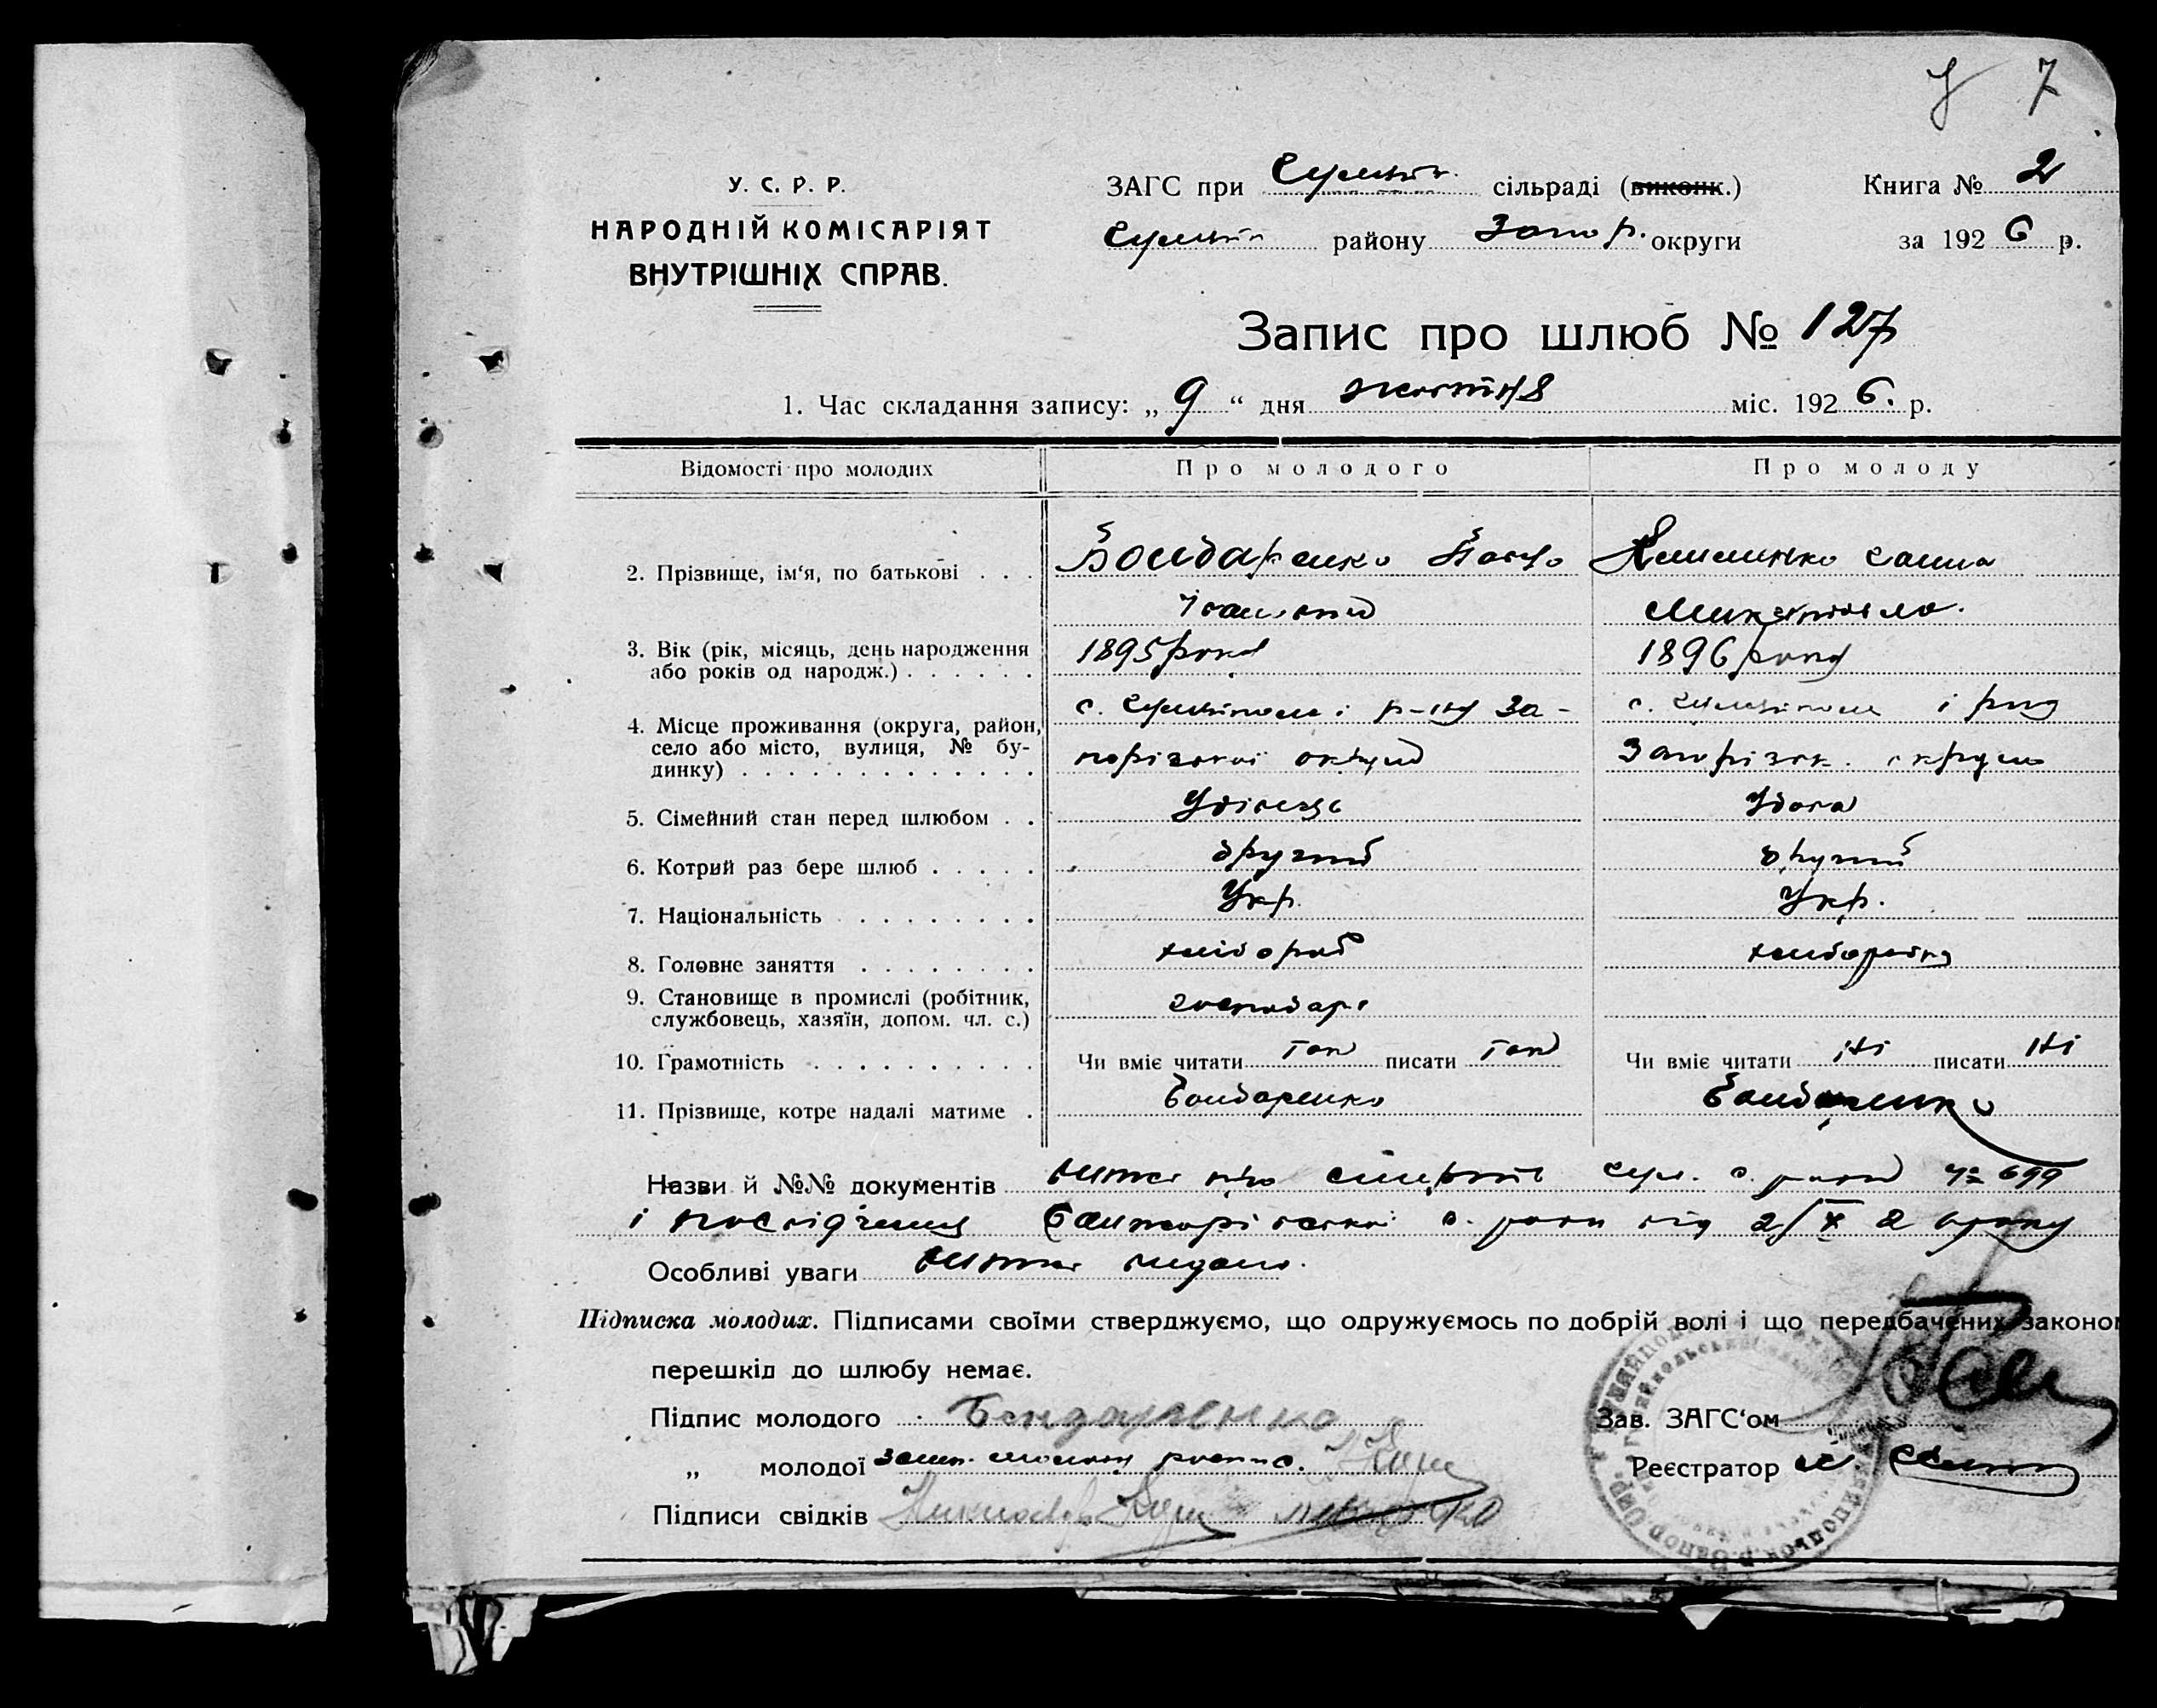 У 7
У. С. Р. Р.
НАРОДНІЙ КОМІСАРІЯТ
ВНУТРІШНІХ СПРАВ.
ЗАГС при сільраді (виконк.) Книга № 2
району Запор. округи за 1926 р.
Запис про шлюб № 127
1. Час складання запису: „ 9 “ дня жовтня міс. 1926. р.
Відомості про молодих Про молодого Про молоду
2. Прізвище, ім‘я, по батькові . . . Бондаренко Павло
3. Вік (рік, місяць, день народження 1895 року 1896 року
або років од народж.) . . . . . .
4. Місце проживання (округа, район, с. р-ну За- с.
село або місто, вулиця, № бу-
динку) . . . . . . . . . . . . . порізької округи Запорізьк. округи
5. Сімейний стан перед шлюбом . . Удівець Удова
6. Котрий раз бере шлюб . . . . . другий другий
7. Національність . . . . . . . . . Укр. Укр.
8. Головне заняття . . . . . . . . хлібороб
9. Становище в промислі (робітник, господарь
службовець, хазяїн, допом. чл. с.)
10. Грамотність . . . . . . . . . . Чи вміє читати так писати так Чи вміє читати ні писати ні
11. Прізвище, котре надалі матиме . Бондаренко Бондаренко
Назви й №№ документів витяг про смерть с. ради № 699
і посвідчення с. ради від 2/X 26 року
Особливі уваги витяг видано.
Підписка молодих. Підписами своїми стверджуємо, що одружуємось по добрій волі і що передбачених законом
перешкід до шлюбу немає.
Підпис молодого Бондаренко Зав. ЗАГС‘ом
„ молодої Реєстратор
Підписи свідків